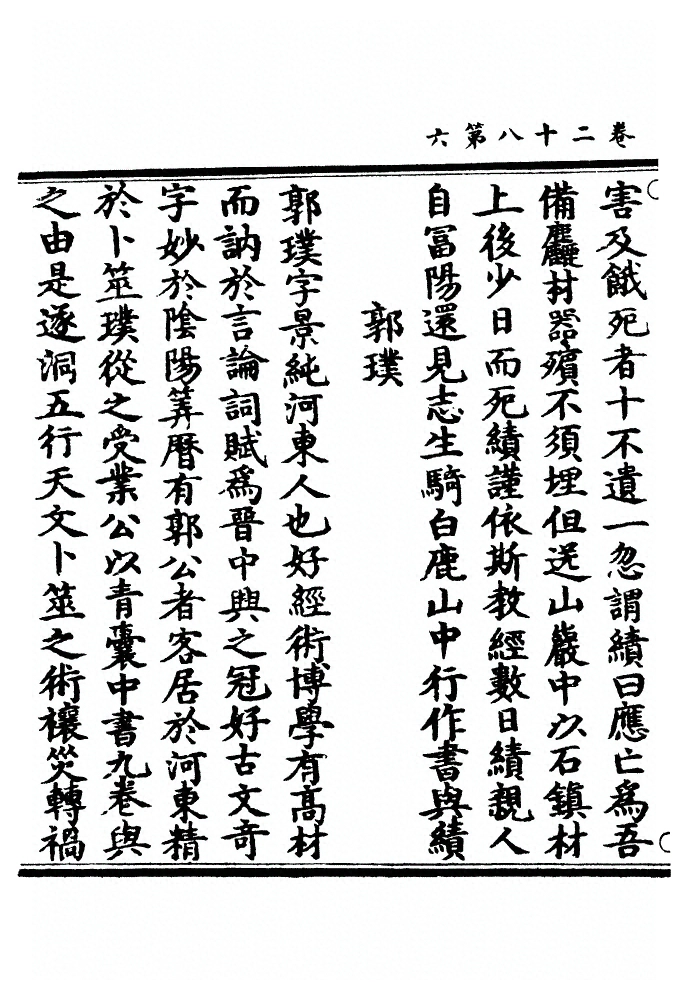 卷二十八第六
害及餓死者十不遺一忽謂績曰應亡爲吾
備麤材器殯不須埋但送山巖中以石鎮材
上後少日而死績謹依斯教經數日績親人
自冨陽還見志生騎白鹿山中行作書與績
郭璞
郭璞字景純河東人也好經術博學有高材
而訥於言論詞賦爲晋中興之冠好古文奇
字妙於陰陽筭曆有郭公者客居於河東精
於卜筮璞從之受業公以青囊中書九卷與
之由是遂洞五行天文卜筮之術禳災轉禍